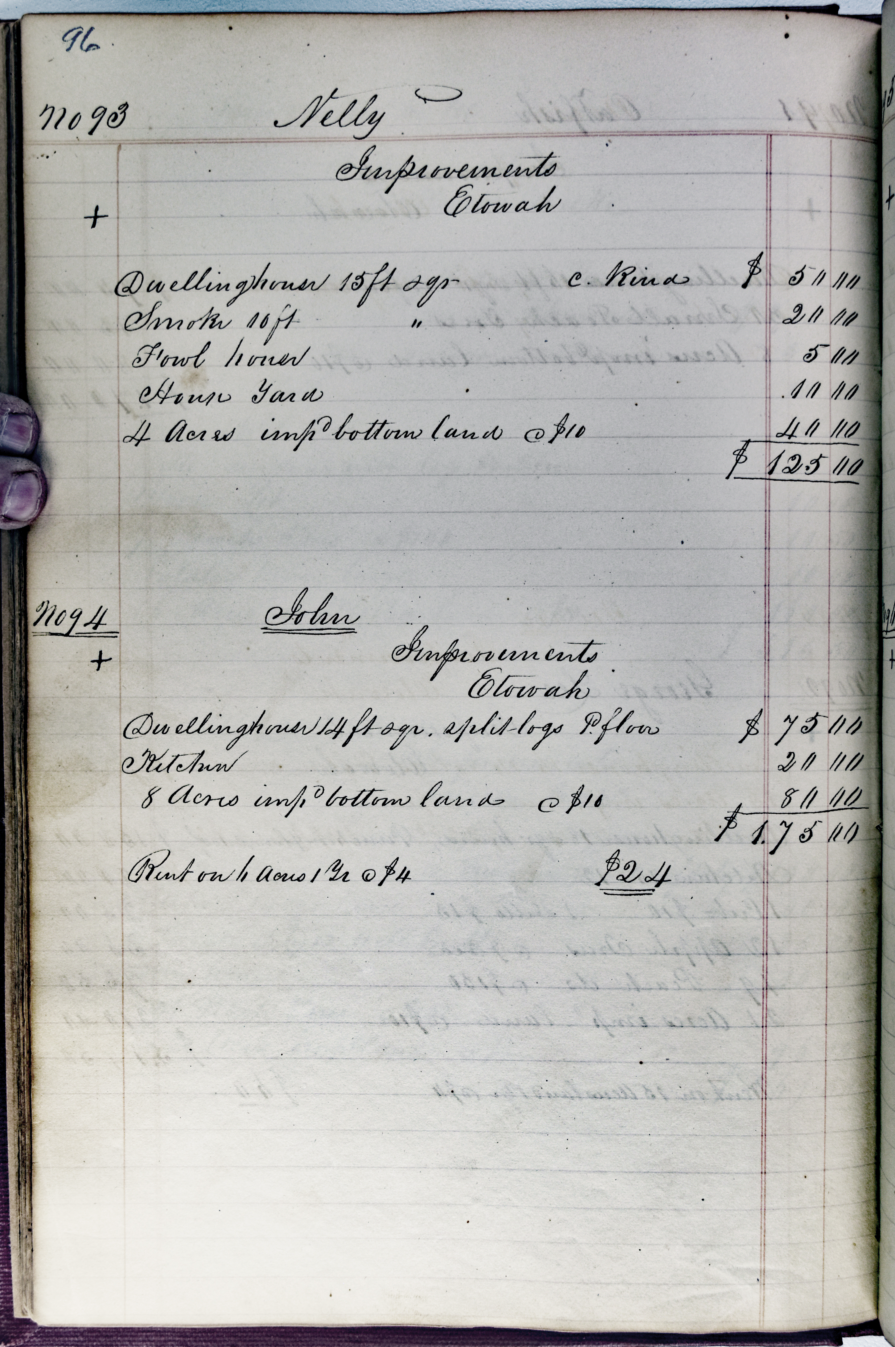 96.
No 93 Nelly
Improvements
+ Etowah
Dwellinghouse 15ft sqr c. Kind $ 50 00
Smoke 10ft " 20 00
Fowl house 5 00
House Yard 10 00
4 Acres impd bottom land @ $10 40 00
$ 125 00
No 94 John
+ Improvements
Etowah
Dwellinghouse 14ft sqr. split logs P. floor $ 75 00
Kitchen 20 00
8 Acres impd bottom land @ $10 80 00
$ 175 00
Rent on 6 Acres 1 Yr @ $4 $24